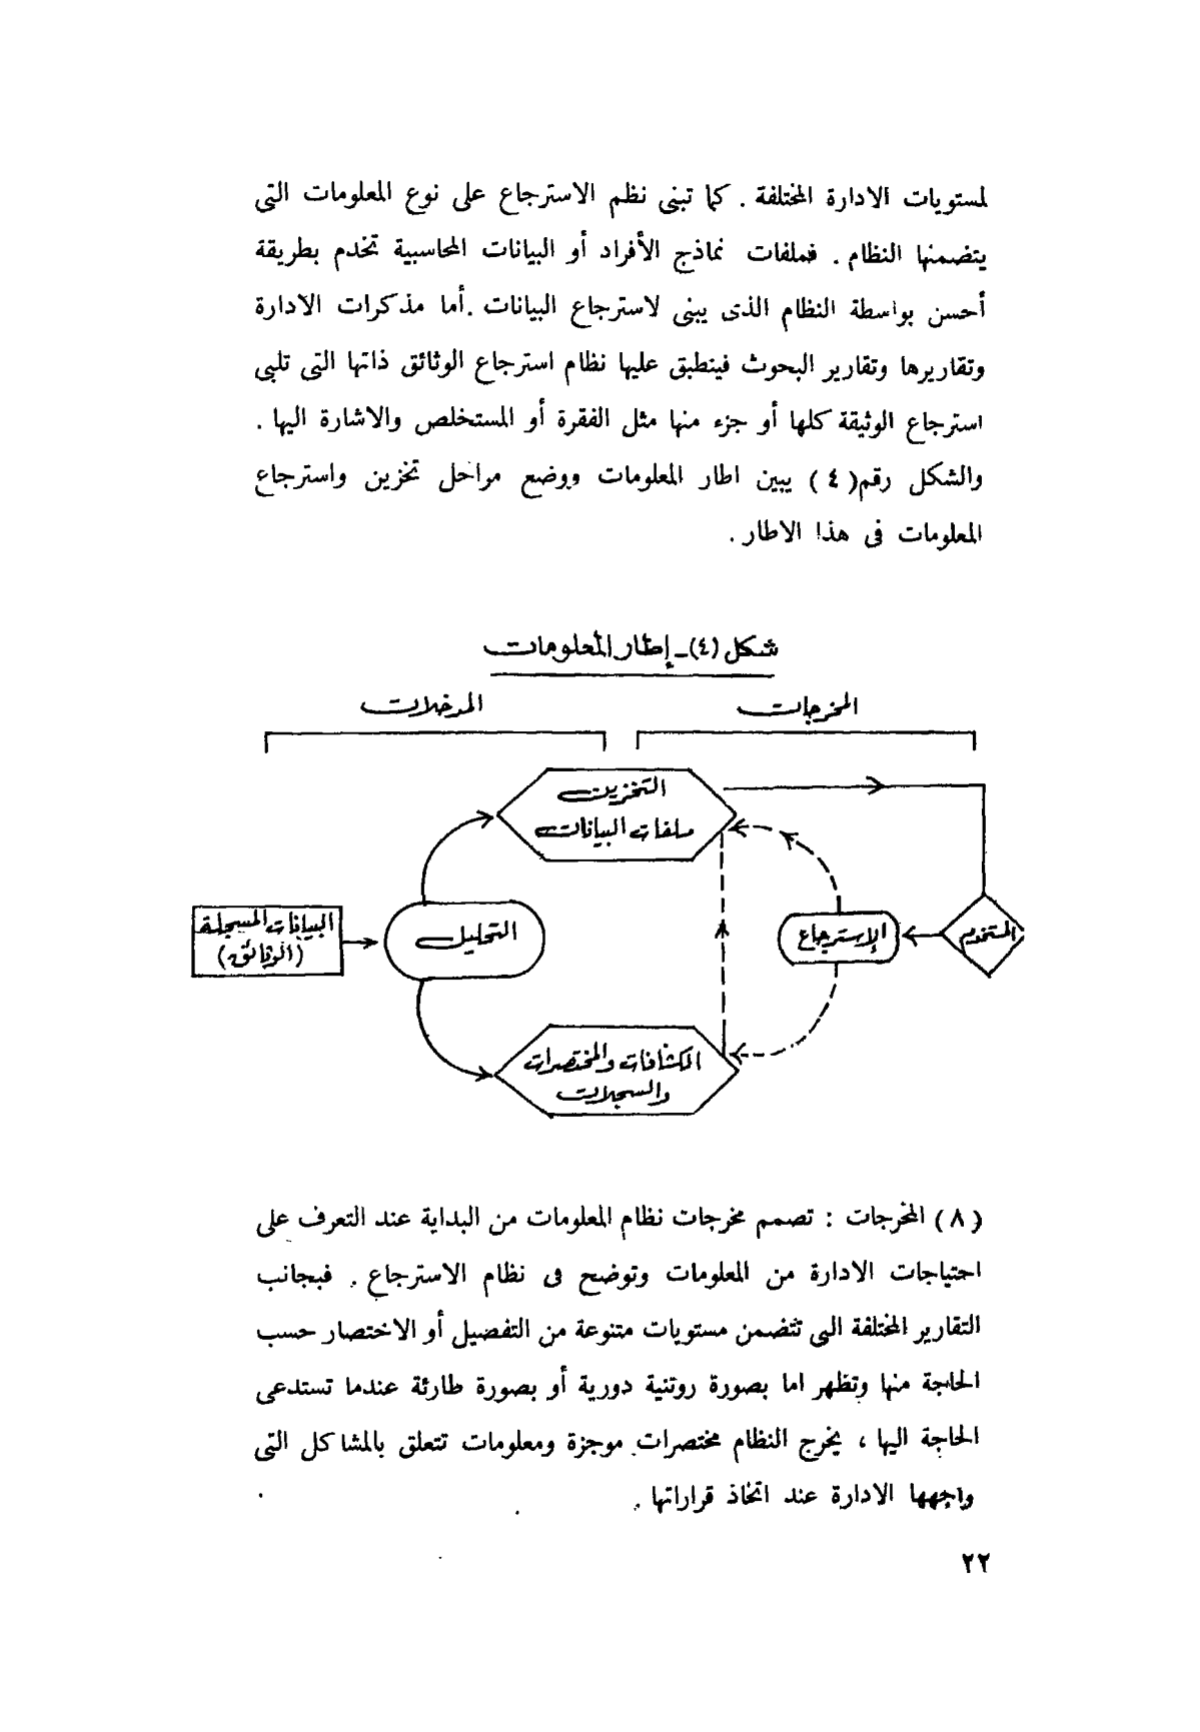 لمستويات الادارة المختلفة . كما تبنى نظم الاسترجاع على نوع المعلومات التى
يتضمنها النظام . فملفات نماذج الأفراد أو البيانات المحاسبية تخدم بطريقة
أحسن بواسطة النظام الذى يبنى لاسترجاع البيانات . أما مذكرات الادارة
وتقاريرها وتقارير البحوث فينطبق عليها نظام استرجاع الوثائق ذاتها التى تلبى
استرجاع الوثيقة كلها أو جزء منها مثل الفقرة أو المستخلص والاشارة اليها .
والشكل رقم ( ٤ ) يبين اطار المعلومات ووضع مراحل تخزين واسترجاع
المعلومات فى هذا الاطار .
شكل (٤) ـ إطار المعلومات
المخرجات
المدخلات
التخزين
ملفات البيانات
البيانات المسجلة
(الوثائق)
التحليل
الإسترجاع
المستخدم
الكشافات والمختصرات
والسجلات
( ٨ ) المخرجات : تصمم مخرجات نظام المعلومات من البداية عند التعرف على
احتياجات الادارة من المعلومات وتوضح فى نظام الاسترجاع . فبجانب
التقارير المختلفة التى تتضمن مستويات متنوعة من التفصيل أو الاختصار حسب
الحاجة منها وتظهر اما بصورة روتنية دورية أو بصورة طارئة عندما تستدعى
الحاجة اليها ، يخرج النظام مختصرات موجزة ومعلومات تتعلق بالمشاكل التى
واجهها الادارة عند اتخاذ قراراتها .
٢٢